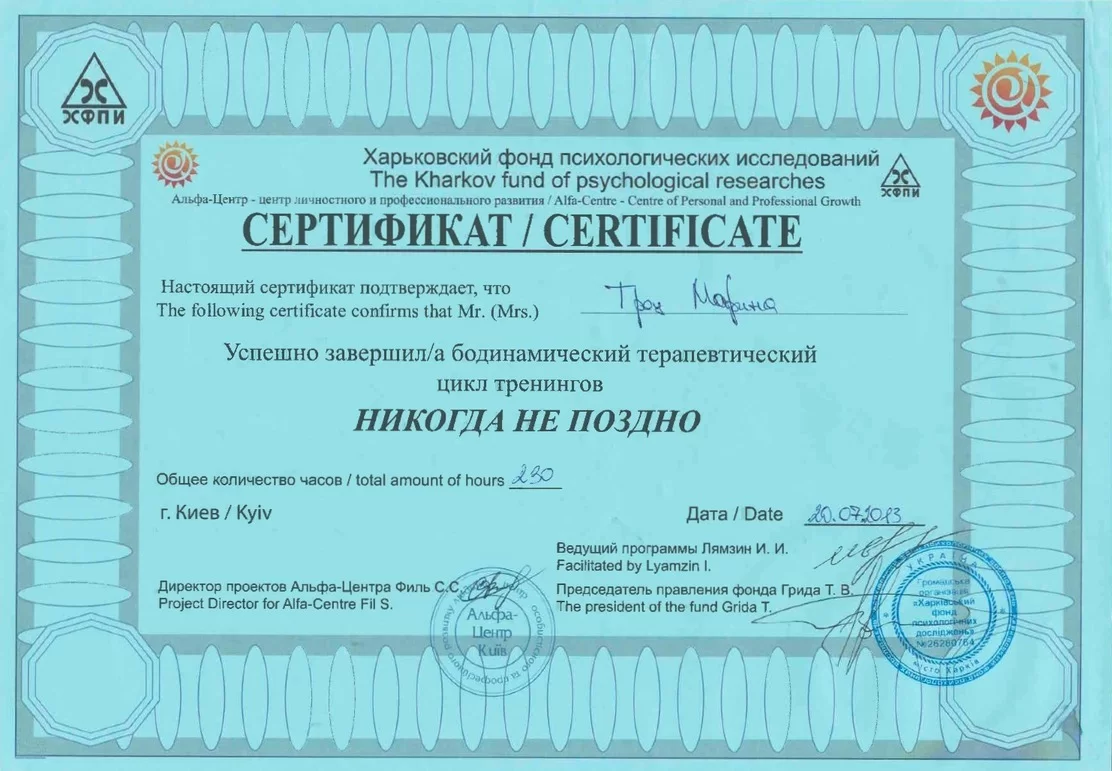 ХФПИ
Харьковский фонд психологических исследований
The Kharkov fund of psychological researches
ХФПИ
Альфа-Центр - центр личностного и профессионального развития / Alfa-Centre - Centre of Personal and Professional Growth
СЕРТИФИКАТ / CERTIFICATE
Настоящий сертификат подтверждает, что
The following certificate confirms that Mr. (Mrs.)
Троц Марина
Успешно завершил/а бодинамический терапевтический
цикл тренингов
НИКОГДА НЕ ПОЗДНО
Общее количество часов / total amount of hours 230
г. Киев / Kyiv
Дата / Date 20.07.2013
Ведущий программы Лямзин И. И.
Facilitated by Lyamzin I.
Директор проектов Альфа-Центра Филь С.С.
Project Director for Alfa-Centre Fil S.
Председатель правления фонда Грида Т. В.
The president of the fund Grida T.
Альфа-
Центр
Київ
особистісного та професійного розвитку
УКРАЇНА
Громадська
організація
«Харківський
фонд
психологічних
досліджень»
№26260764
місто Харків